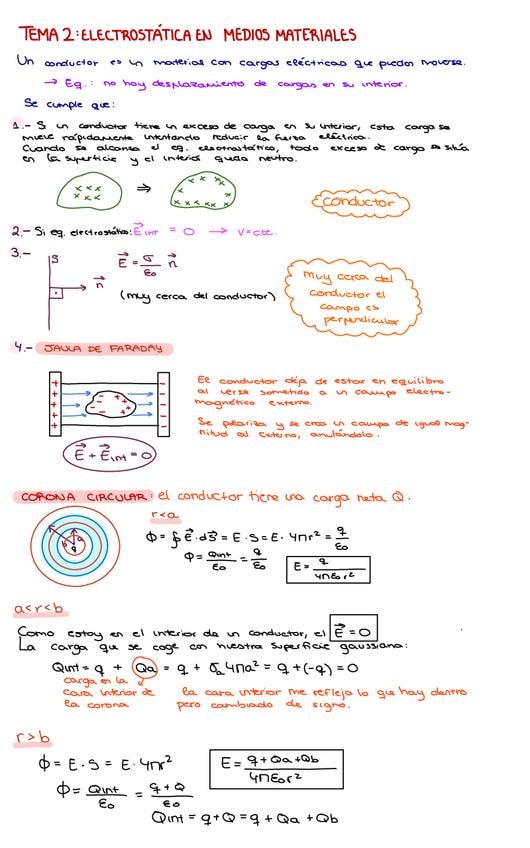 TEMA 2: ELECTROSTÁTICA EN MEDIOS MATERIALES
Un conductor es un material con cargas eléctricas que pueden moverse.
→ Eq.: no hay desplazamiento de cargas en su interior.
Se cumple que:
1.- Si un conductor tiene un exceso de carga en su interior, esta carga se
mueve rápidamente intentando reducir la fuerza eléctrica.
Cuando se alcanza el eq. electrostático, todo exceso de carga se sitúa
en la superficie y el interior queda neutro.
⇒
conductor
2.- Si eq. electrostático: E⃗int = 0 → V=cte.
3.-
S
n⃗
E⃗ = σ/ε₀ n⃗
(muy cerca del conductor)
muy cerca del
conductor el
campo es
perpendicular
4.- JAULA DE FARADAY
El conductor deja de estar en equilibrio
al verse sometido a un campo electro-
magnético externo.
Se polariza y se crea un campo de igual mag-
nitud al externo, anulándolo.
E⃗ + E⃗int = 0
CORONA CIRCULAR: el conductor tiene una carga neta Q.
r<a
b a
q
Φ = ∮ E⃗·dS⃗ = E·S = E·4πr² = q/ε₀
Φ = Qint/ε₀ = q/ε₀
E = q/4πε₀r²
a<r<b
Como estoy en el interior de un conductor, el E⃗ = 0
La carga que se coge con nuestra superficie gaussiana:
Qint = q + Qa = q + σa 4πa² = q + (-q) = 0
carga en la
cara interior de
la corona
la cara interior me refleja lo que hay dentro
pero cambiado de signo.
r>b
Φ = E·S = E·4πr²
E = q + Qa + Qb/4πε₀r²
Φ = Qint/ε₀ = q+Q/ε₀
Qint = q+Q = q + Qa + Qb